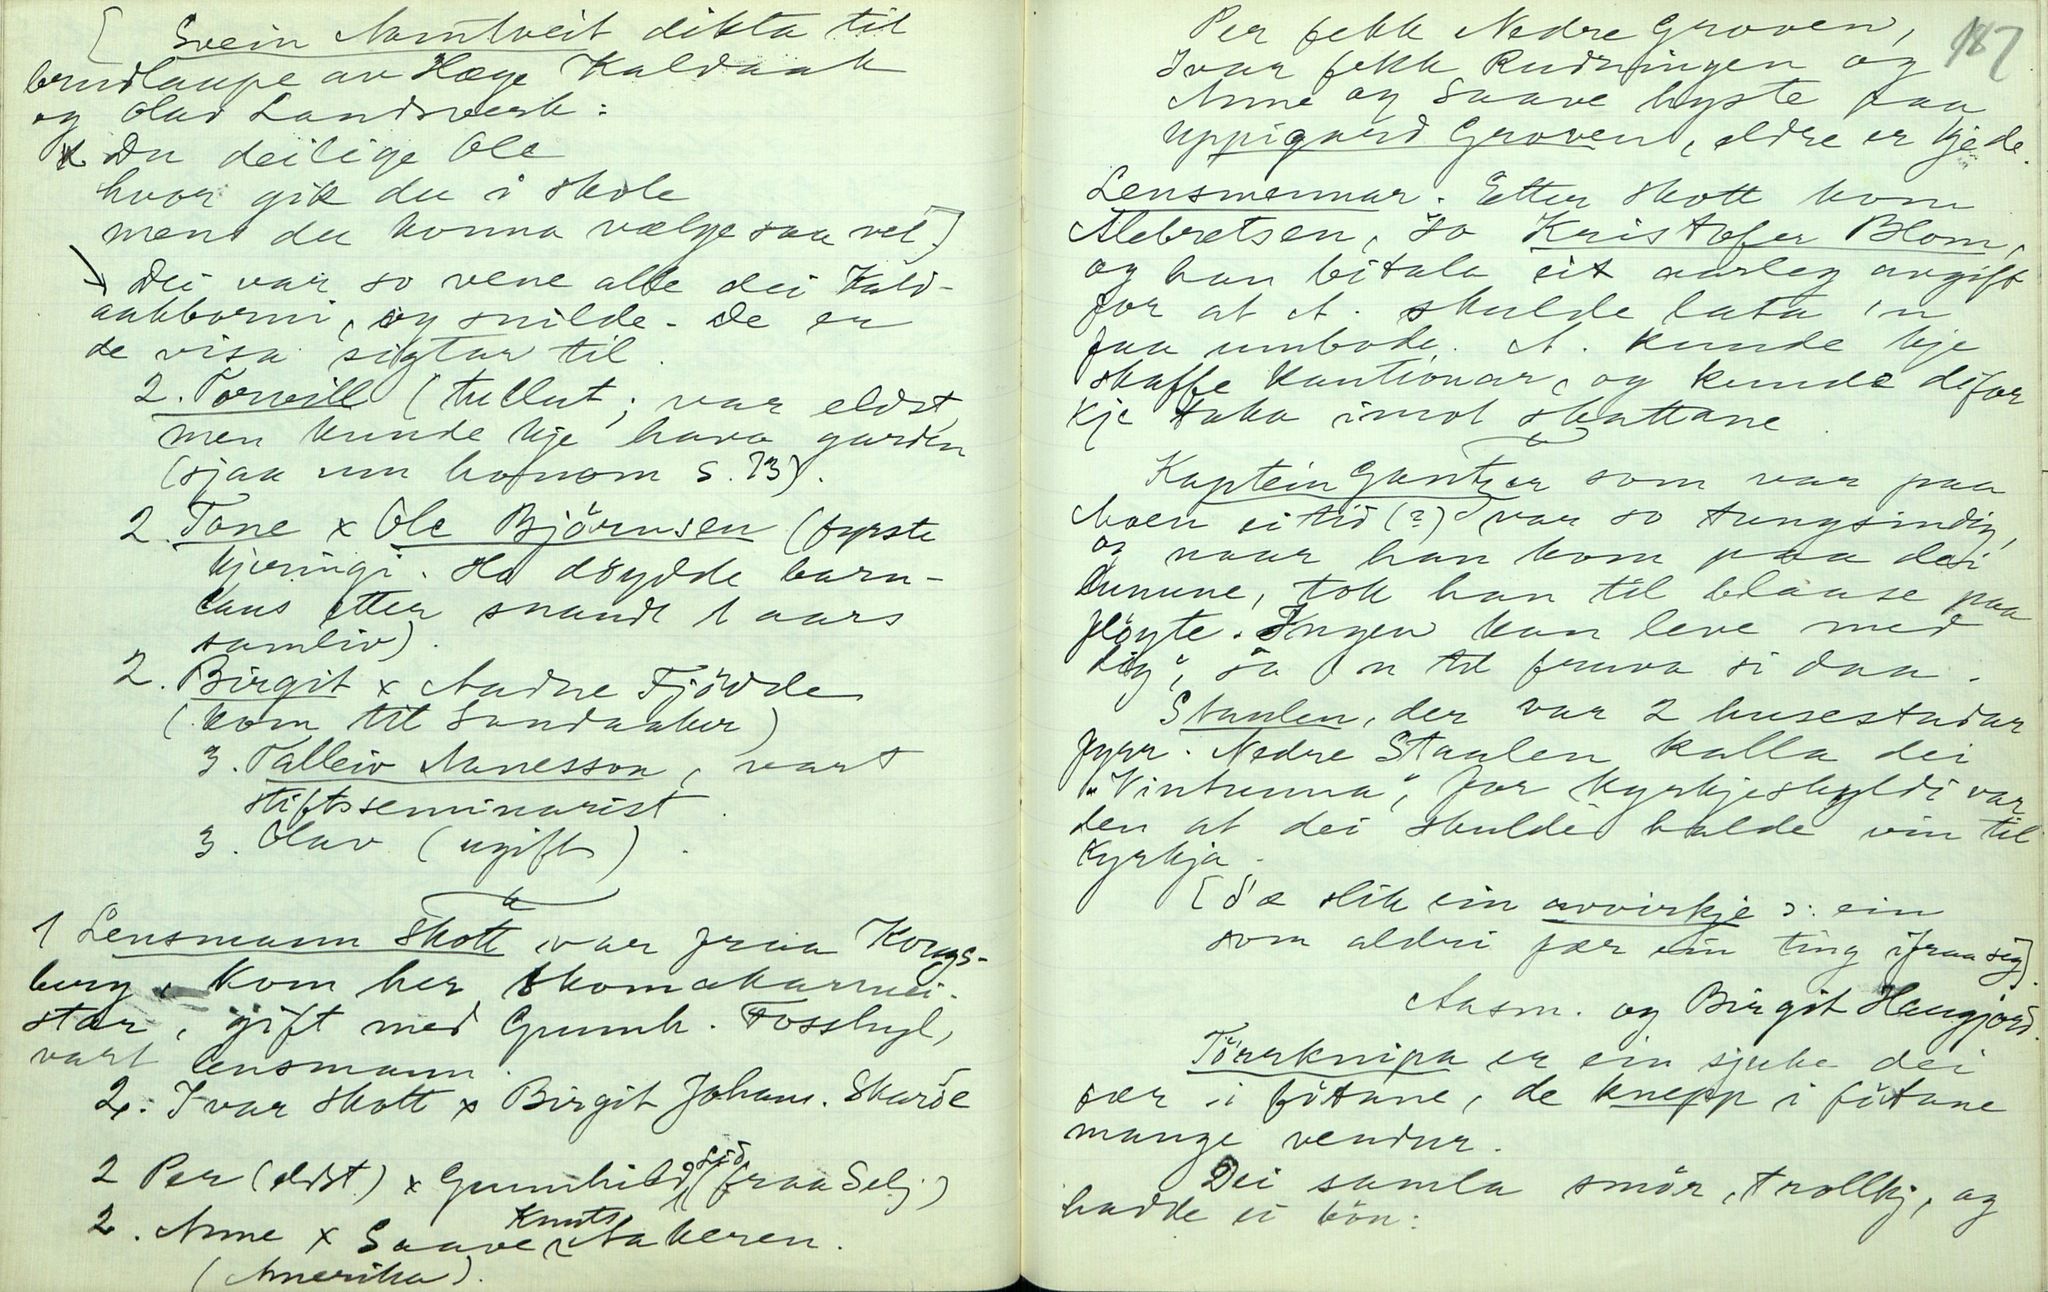 [ Svein Nomtveit dikta til
brudlaupe av Hæge Kaldaak
og Olav Landsverk:
Du deilige Ole
hvor gik du i skole
mens du konna vælge saa vel]
Dei var so vene alle dei Kald-
aakborni, og snilde. De er
de visa sigtar til.
2. Torvill (tullut; var eldst,
men kunde kje hava garden
(sjaa um honom S. 73).
2 Tone x Ole Björnsen (fyrste
kjeringi. Ho döydde barn-
laus etter snaudt 1 aars
samliv).
2. Birgit x Aadne Fjödde
(kom til Sandaaker)
3. Talleiv Aanesson, vart
stiftsseminarist.
3. Olav (ugift).
1 Lensmann Skott var fraa Kongs-
berg, kom her skomakarmei-
star, gift med Gunnh. Fosshyl,
vart lensmann.
2. Ivar Skott x Birgit Johans. Skarde
2 Per (eldst) x Gunnhild Lid (fraa Selj)
2. Anne x Saave Knuts Aakeren.
(Amerika).
187
Per fekk Nedre Groven,
Ivar fekk Rudningen og
Anne og Saave bygste paa
Uppigard Groven, eldre er kje de.
Lensmennar. Etter Skott kom
Alebretsen, so Kristofer Blom,
og han bitala eit aarleg avgift
for at A. skulde lata 'n
faa umbode. A. kunde kje
skaffe kautionar, og kunde difor
kje taka imot skattane.
Kaptein Gantzer som var paa
Moen ei tid (?) var so tungsindig,
og naar han kom paa dei
lununne, tok han til blaase paa
flöyte. "Ingen kan leve med
dig", sa 'n til fruva si daa.
Staulen, der var 2 husestadar
fyrr. Nedre Staulen kalla dei
"Vintunna", for kyrkjeskyldi var
den at dei skulde halde vin til
Kyrkja.
[ d'æ slik ein avvirkje ɔ: ein
som aldri fær ein ting ifraa seg].
Aasm. og Birgit Haugjord.
Törrknipa er ein sjuke dei
fær i fötane, de knepp i fötane
mange vendur.
Dei samla smör, trollkj, og
hadde ei bön: